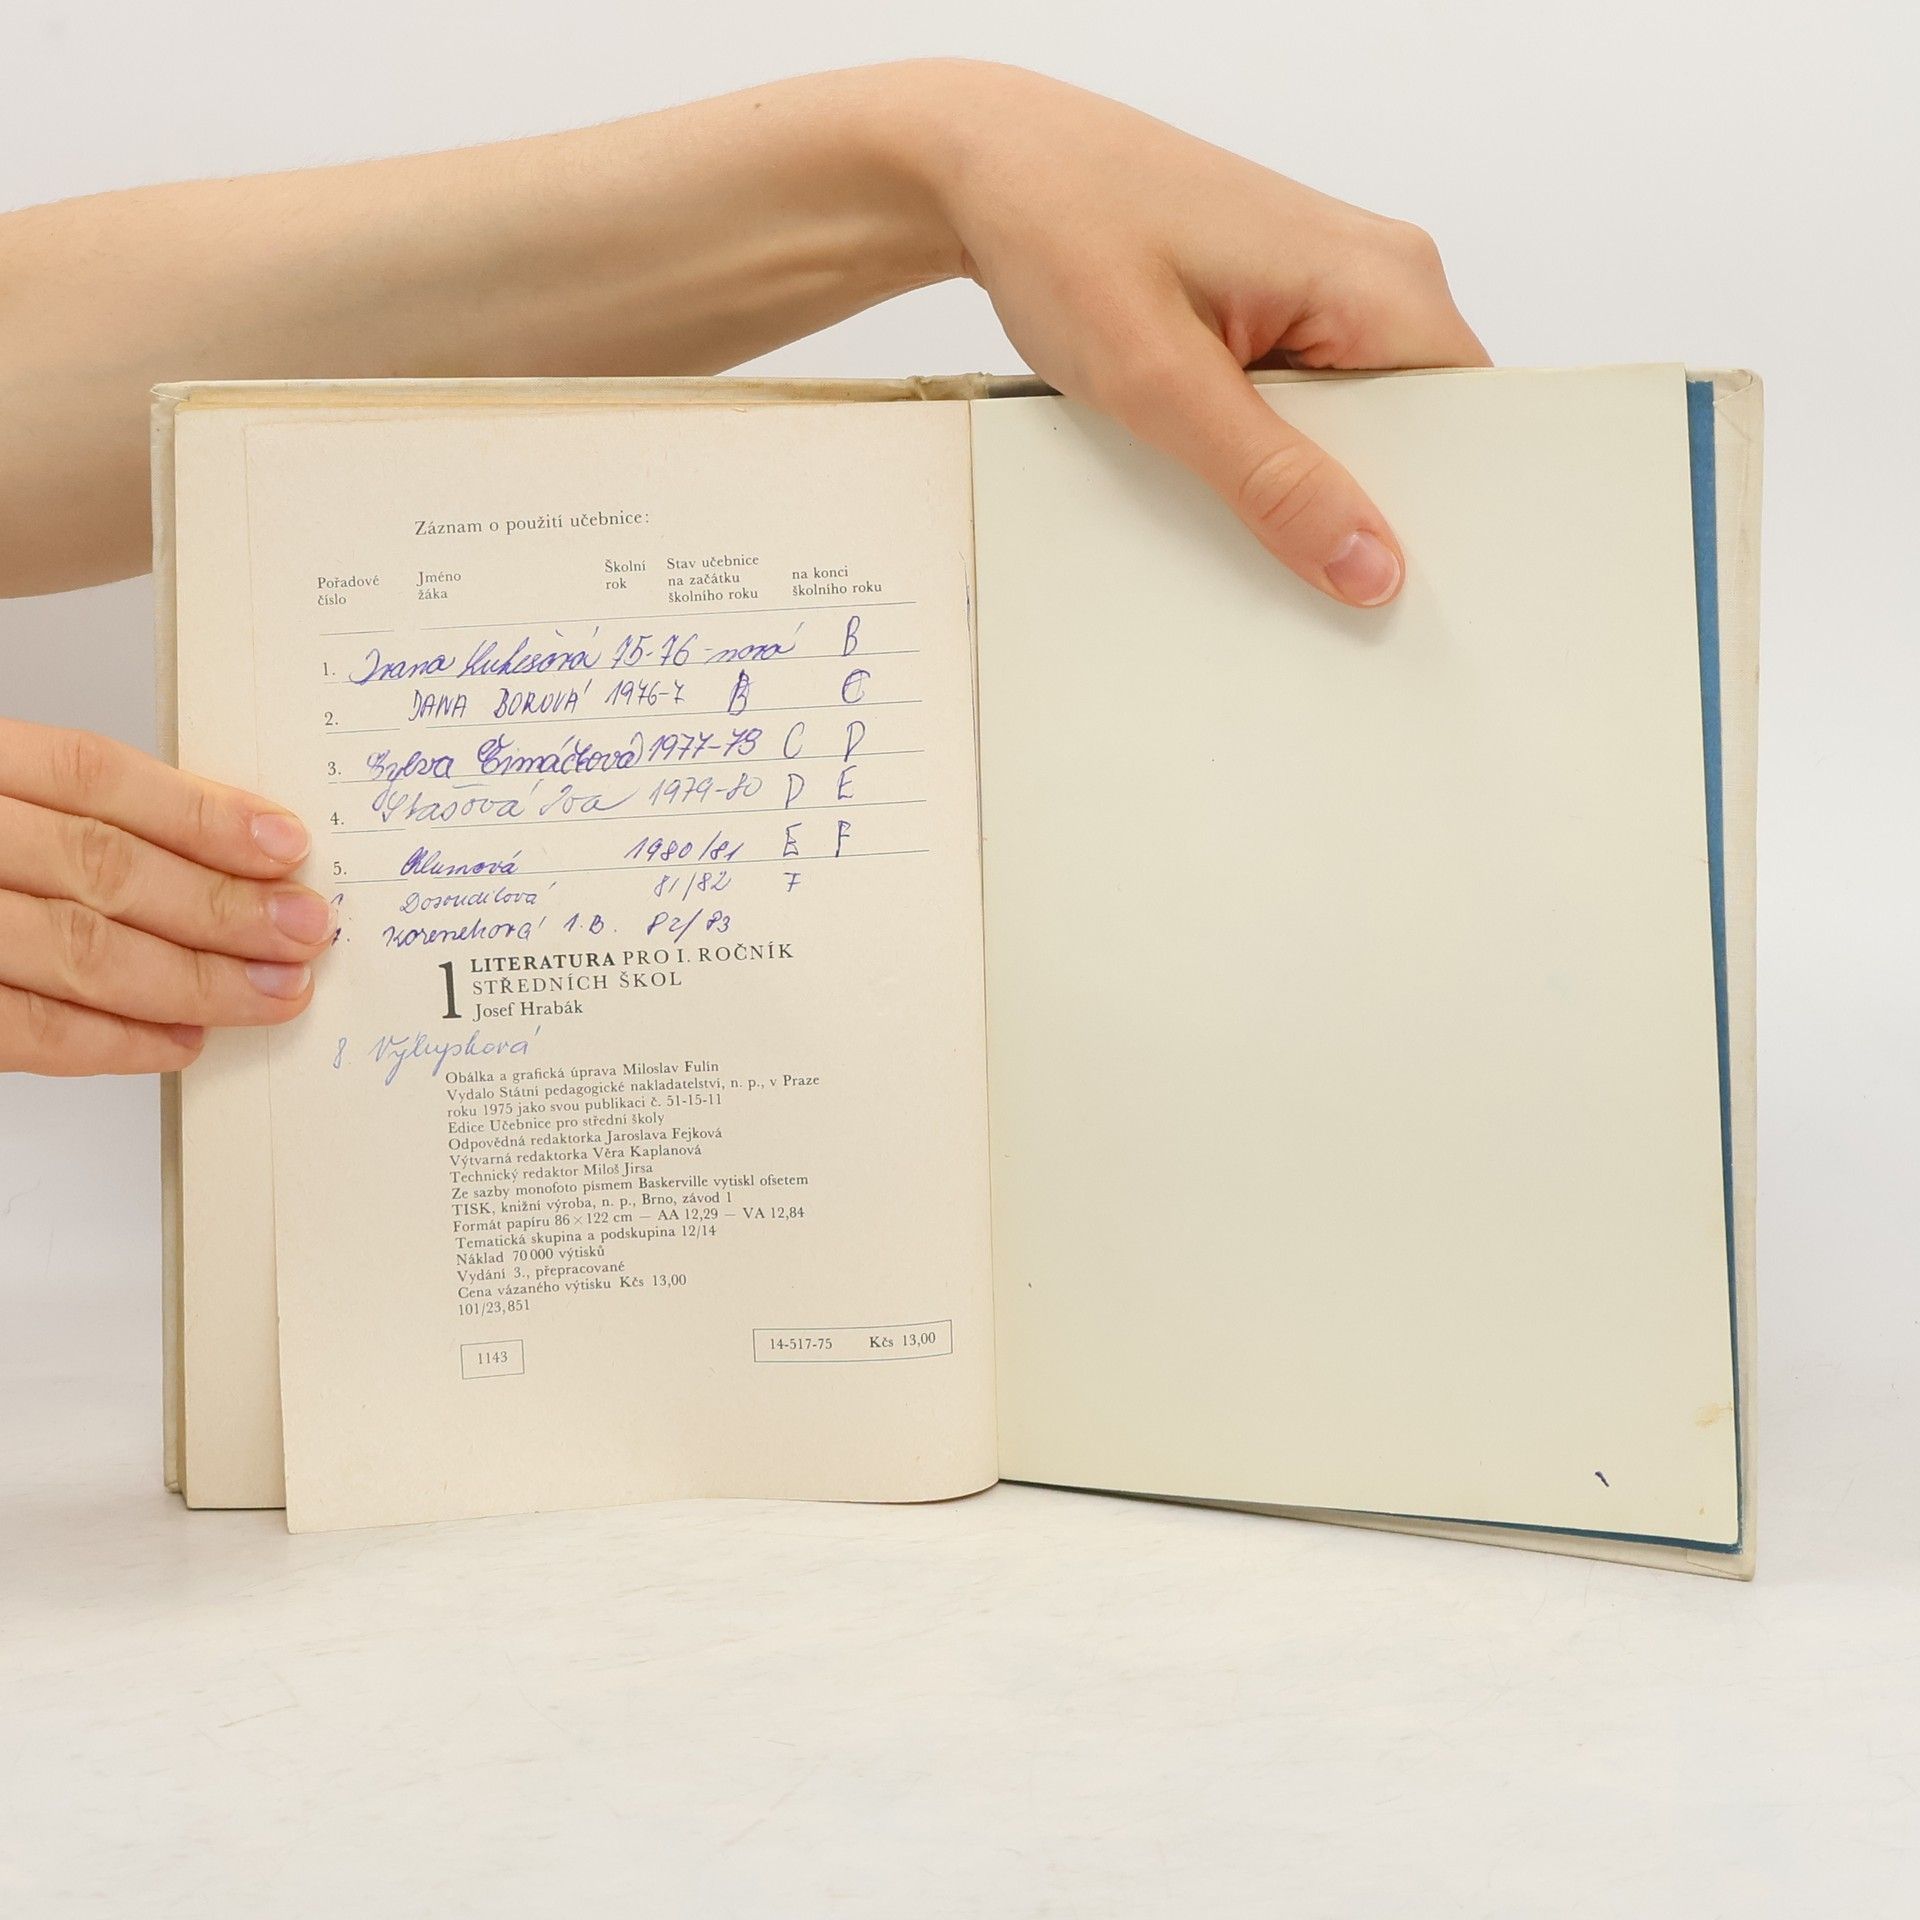 Záznam o použití učebnice:
Pořadové číslo Jméno žáka Školní rok Stav učebnice na začátku školního roku na konci školního roku
1. Ivana Lukešová 75-76 - nová B
2. DANA BOROVÁ 1976-7 B C
3. Sylva 1977-79 C D
4. Stašová Iva 1979-80 D E
5. Klumová 1980/81 E F
Dosoudilová 81/82 F
Korenehová 1.B. 82/83
1 LITERATURA PRO I. ROČNÍK
STŘEDNÍCH ŠKOL
Josef Hrabák
8. Výlupková
Obálka a grafická úprava Miloslav Fulín
Vydalo Státní pedagogické nakladatelství, n. p., v Praze
roku 1975 jako svou publikaci č. 51-15-11
Edice Učebnice pro střední školy
Odpovědná redaktorka Jaroslava Fejková
Výtvarná redaktorka Věra Kaplanová
Technický redaktor Miloš Jirsa
Ze sazby monofoto písmem Baskerville vytiskl ofsetem
TISK, knižní výroba, n. p., Brno, závod 1
Formát papíru 86 × 122 cm — AA 12,29 — VA 12,84
Tematická skupina a podskupina 12/14
Náklad 70 000 výtisků
Vydání 3., přepracované
Cena vázaného výtisku Kčs 13,00
101/23,851
1143
14-517-75 Kčs 13,00